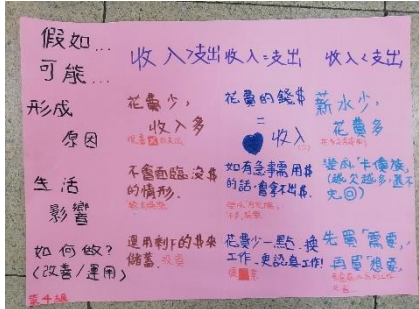 假如…
可能…
收入>支出
收入=支出
收入<支出
形成
原因
花費少,
收入多
花費的錢$
=
收入
薪水少,
花費多
生活
影響
不會面臨沒$
的情形.
如有急事需用$
的話,會拿不出$.
變成「卡債族」
(越欠越多,甚至
如何做?
(改善/運用)
運用剩下的$來
儲蓄.
花費少一點.換
工作.更認真工作!
先買「需要」,
再買「想要」
第4組